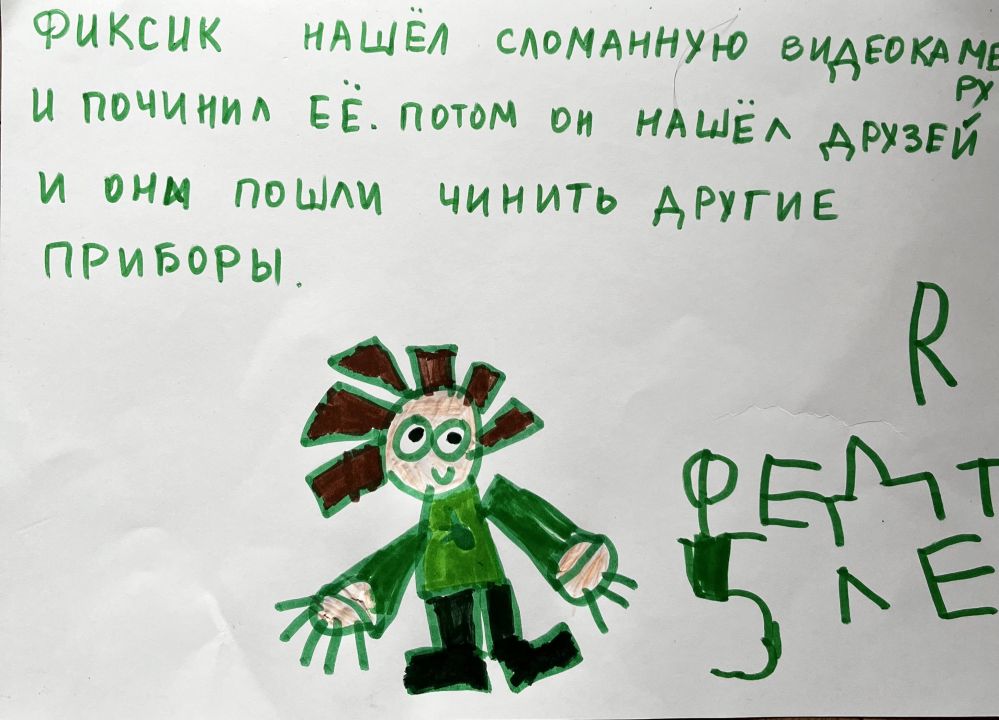 ФИКСИК НАШЁЛ СЛОМАННУЮ ВИДЕОКАМЕ
РУ
И ПОЧИНИЛ ЕЁ. ПОТОМ ОН НАШЁЛ ДРУЗЕЙ
И ОНИ ПОШЛИ ЧИНИТЬ ДРУГИЕ
ПРИБОРЫ.
Я
5 ЛЕ